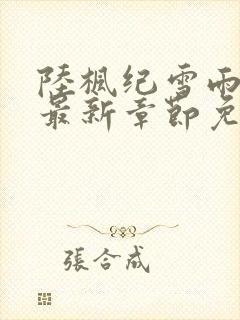 陸楓纪雪雨
最新章節免
張合成